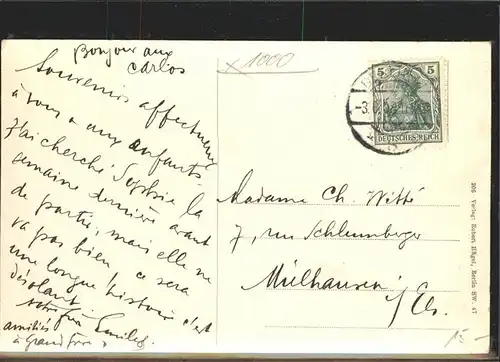 Bonjour aux
Carlos
Souvenirs affectueux
à vous & aux enfants.
J'ai cherché Sophie la
semaine dernière avant
de partir, mais elle ne
va pas bien ce sera
une longue histoire c'est
désolant
amitiés
à Grand
x 1000
5 5
DEUTSCHES REICH
-3.
Madame Ch. Witté
7, rue Schlumberger
Mülhausen
i/Els.
205 Verlag: Robert Berlin SW. 47